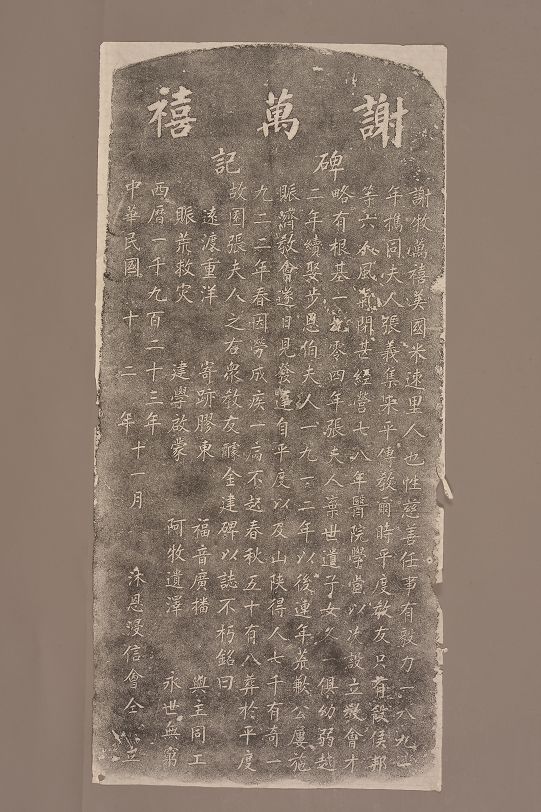 謝萬禧
碑記
謝牧萬禧美國米速里人也性慈善任事有毅力一八九一
年携同夫人張義集來平傳教爾時平度教友只有段侯邦
等六人風氣開甚經營七八年醫院學堂以次設立教會才
略有根基一九零四年張夫人棄世遺子女各一俱幼弱越
二年續娶步恩伯夫人一九一二年以後連年荒歉公屢施
賑濟教會遂日見發達自平度以及山陝得人七千有奇一
九二二年春因勞成疾一病不起春秋五十有八葬於平度
故園張夫人之右衆教友醵金建碑以誌不朽銘曰
遠渡重洋 寄跡膠東 福音廣播 與主同工
賑荒救灾 建學啟蒙 阿牧遺澤 永世無窮
西曆一千九百二十三年
中華民國十二年十一月 沐恩浸信會仝立